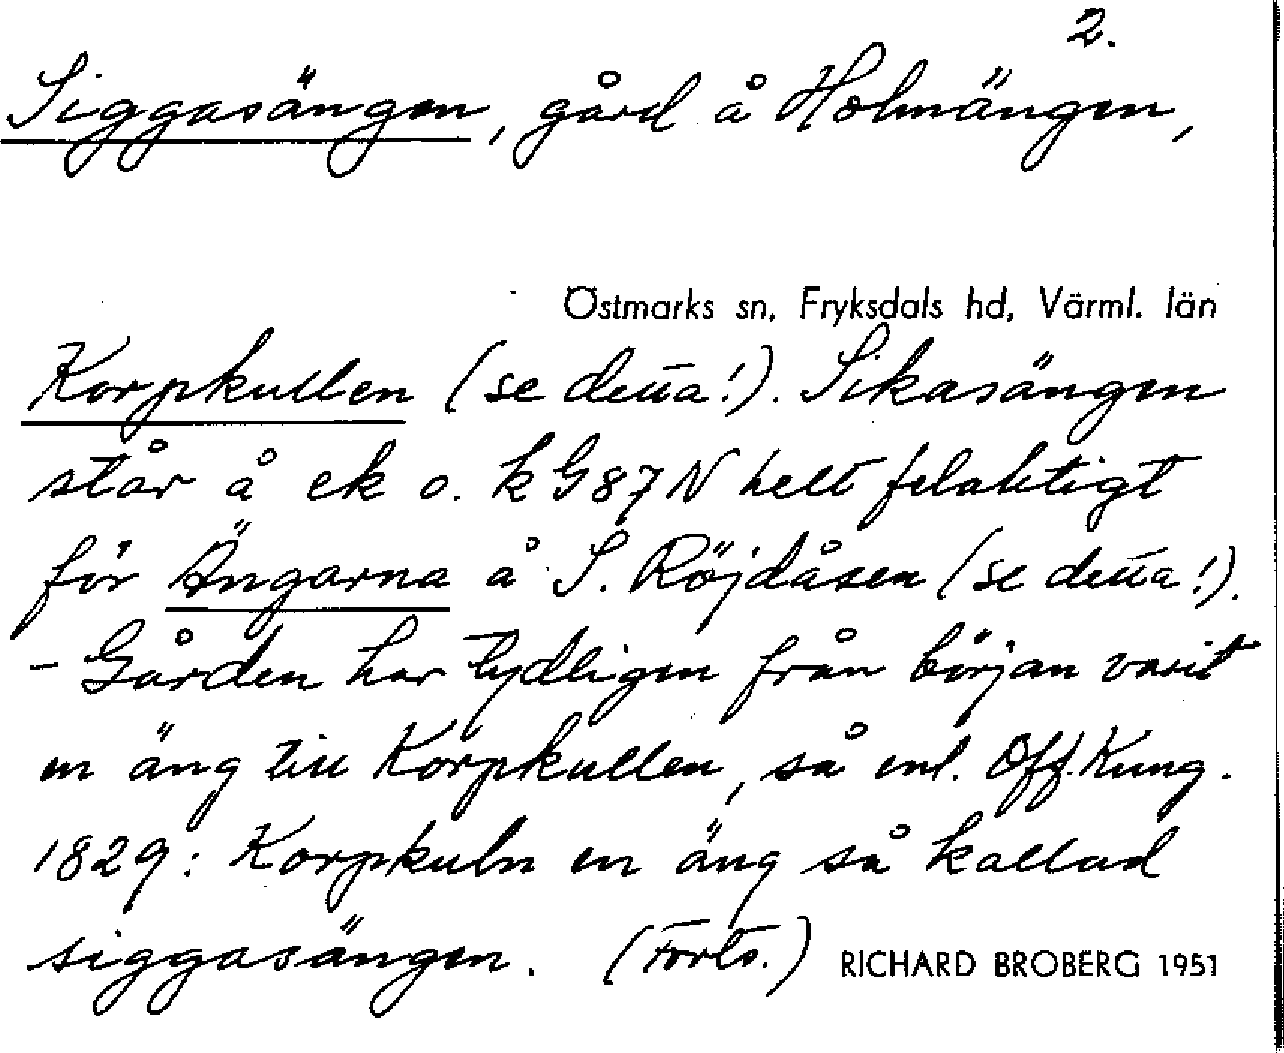 2.
Siggasängen, gård å Holmängen,
Östmarks sn, Fryksdals hd, Värml. län
Korpkullen (se detta!). Sikasängen
står å ek o. k G87N helt felaktigt
för Ängarna å S. Röjdåsen (se detta!).
- Gården har tydligen från början varit
en äng till Korpkullen, så enl. Off. Kung.
1829: Korpkuln en äng så kallad
siggasängen. (Forts.) RICHARD BROBERG 1951